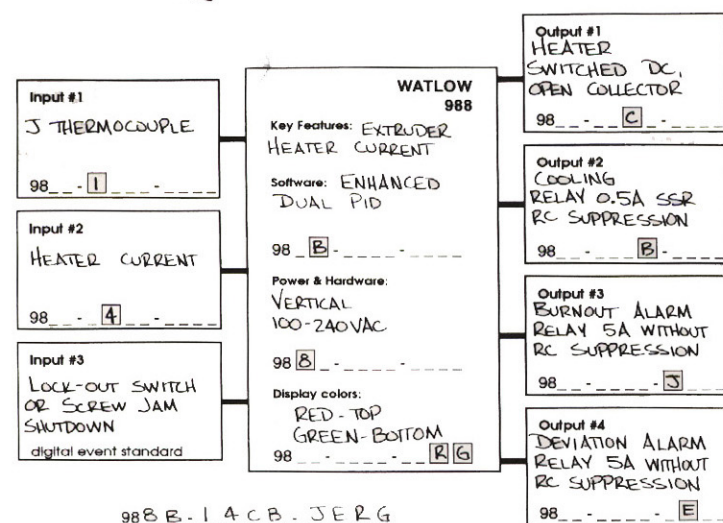 Input #1
J THERMOCOUPLE
98_ _ - 1 _ _ _ - _ _ _ _
Input #2
HEATER CURRENT
98_ _ - _ 4 _ _ - _ _ _ _
Input #3
LOCK-OUT SWITCH
OR SCREW JAM
SHUTDOWN
digital event standard
WATLOW
988
Key Features: EXTRUDER
HEATER CURRENT
Software: ENHANCED
DUAL PID
98 _ B - _ _ _ _ - _ _ _ _
Power & Hardware:
VERTICAL
100-240VAC
98 8 _ - _ _ _ _ - _ _ _ _
Display colors:
RED - TOP
GREEN-BOTTOM
98 _ _ - _ _ _ _ - _ _ R G
Output #1
HEATER
SWITCHED DC,
OPEN COLLECTOR
98_ _ - _ _ C _ - _ _ _ _
Output #2
COOLING
RELAY 0.5A SSR
RC SUPPRESSION
98_ _ - _ _ _ B - _ _ _ _
Output #3
BURNOUT ALARM
RELAY 5A WITHOUT
RC SUPPRESSION
98_ _ - _ _ _ _ - J _ _ _
Output #4
DEVIATION ALARM
RELAY 5A WITHOUT
RC SUPPRESSION
98_ _ - _ _ _ _ - _ E _ _
988B-14CB-JERG